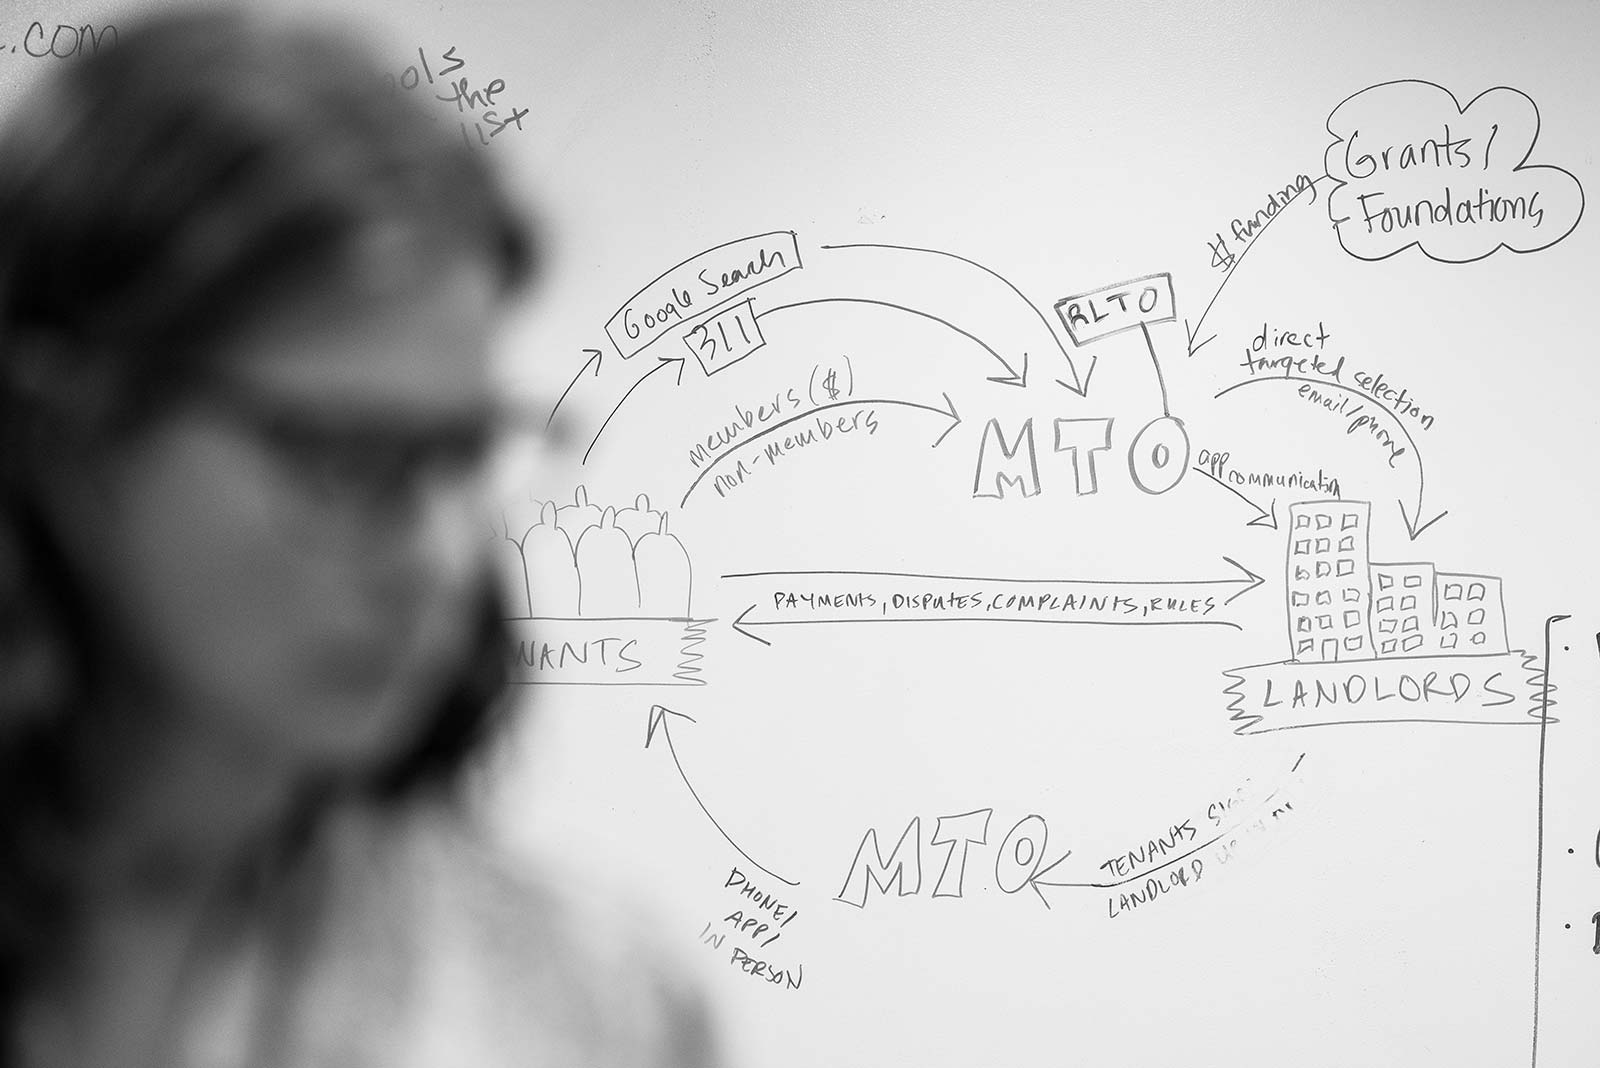 .com
ools
the
list
Grants/
Foundations
$ funding
Google Search
311
RLTO
members ($)
non-members
MTO
direct
targeted selection
email/phone
app communication
PAYMENTS, DISPUTES, COMPLAINTS, RULES
NANTS
LANDLORDS
MTO
TENANTS
LANDLORD
PHONE/
APP/
IN PERSON